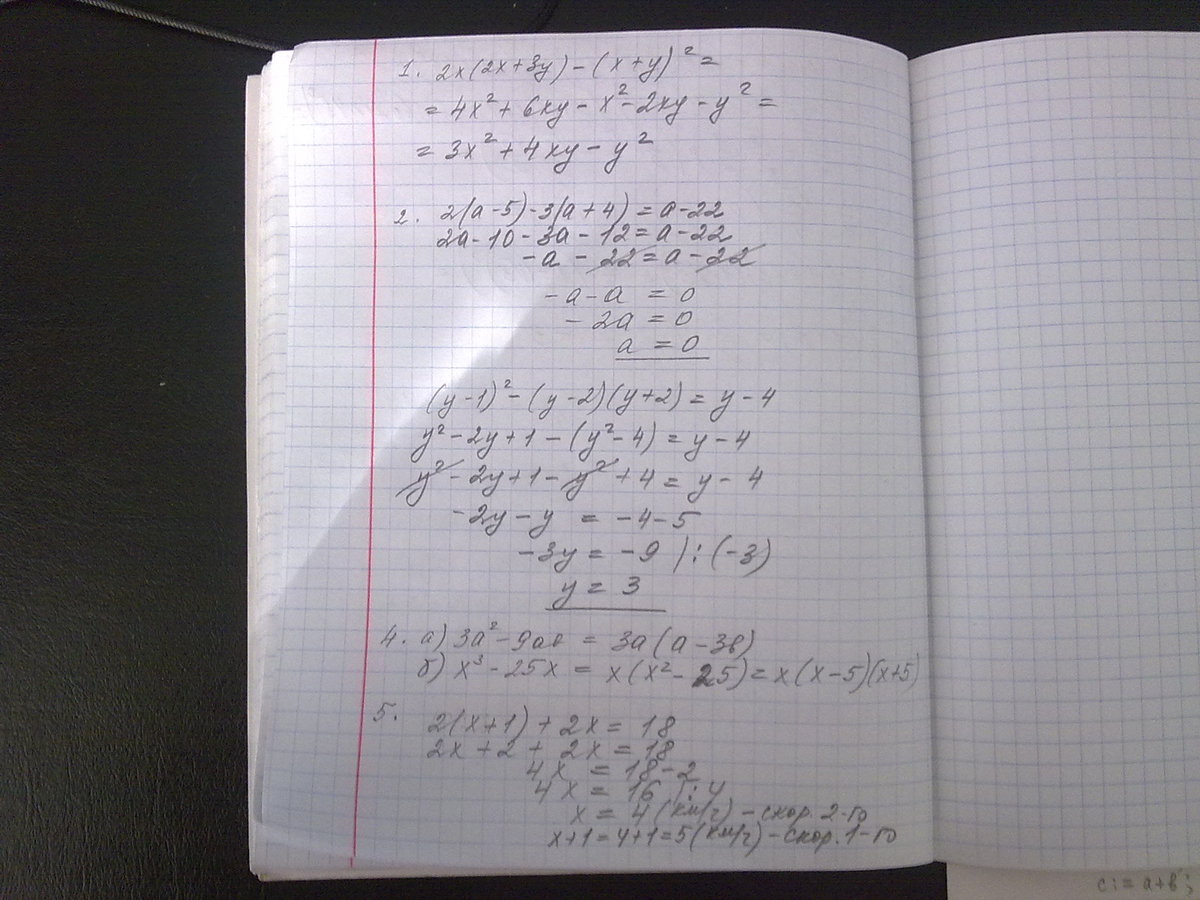 1. 2x(2x+3y)-(x+y)²=
= 4x²+6xy-x²-2xy-y²=
= 3x²+4xy-y²
2. 2(a-5)-3(a+4)=a-22
2a-10-3a-12=a-22
-a-22=a-22
-a-a=0
-2a=0
a=0
(y-1)²-(y-2)(y+2)=y-4
y²-2y+1-(y²-4)=y-4
y²-2y+1-y²+4=y-4
-2y-y=-4-5
-3y=-9 |:(-3)
y=3
4. а) 3a²-9ab=3a(a-3b)
б) x³-25x=x(x²-25)=x(x-5)(x+5)
5. 2(x+1)+2x=18
2x+2+2x=18
4x=18-2
4x=16 |:4
x=4(км/ч)-скор. 2-го
x+1=4+1=5(км/ч)-скор. 1-го
c:=a+b;